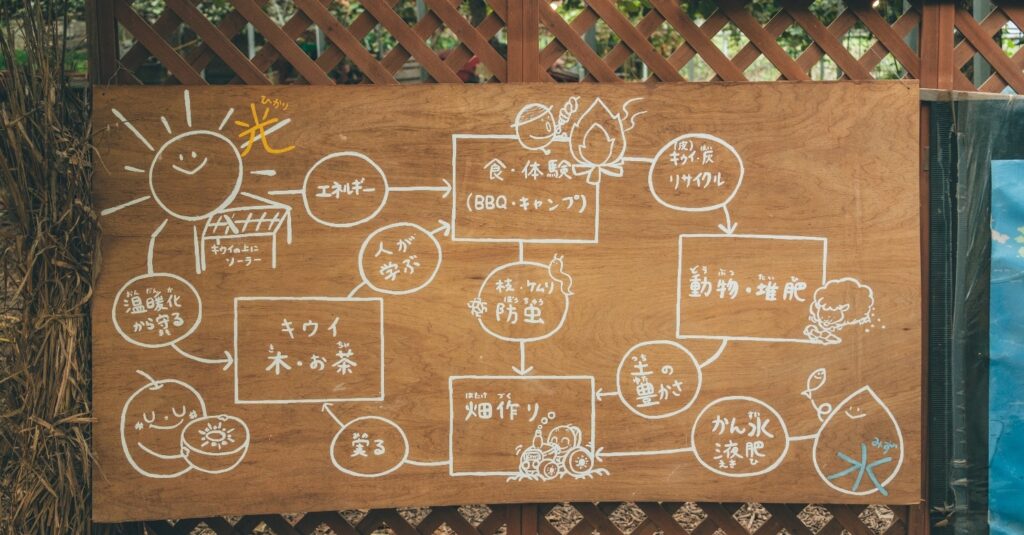 ひかり
光
エネルギー
キウイの上に
ソーラー
人が
学ぶ
食・体験
(BBQ・キャンプ)
(皮) ばい
キウイ・炭
リサイクル
おん だん か
温暖化
から守る
キウイ
き ちゃ
木・お茶
ぼうちゅう
防虫
どう ぶつ たい ひ
動物・堆肥
土の
豊かさ
はたけ づく
畑作り
る
かん水
えき ひ
液肥
みず
水